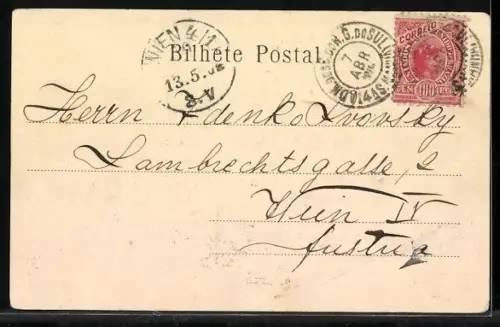 Bilhete Postal.
WIEN 4/1
13.5.02
8.V
7
ABR
CORREIO
100
CEM REIS
Herrn Zdenko Lvovsky
Lambrechtsgasse, 2
Wien IV
Austria